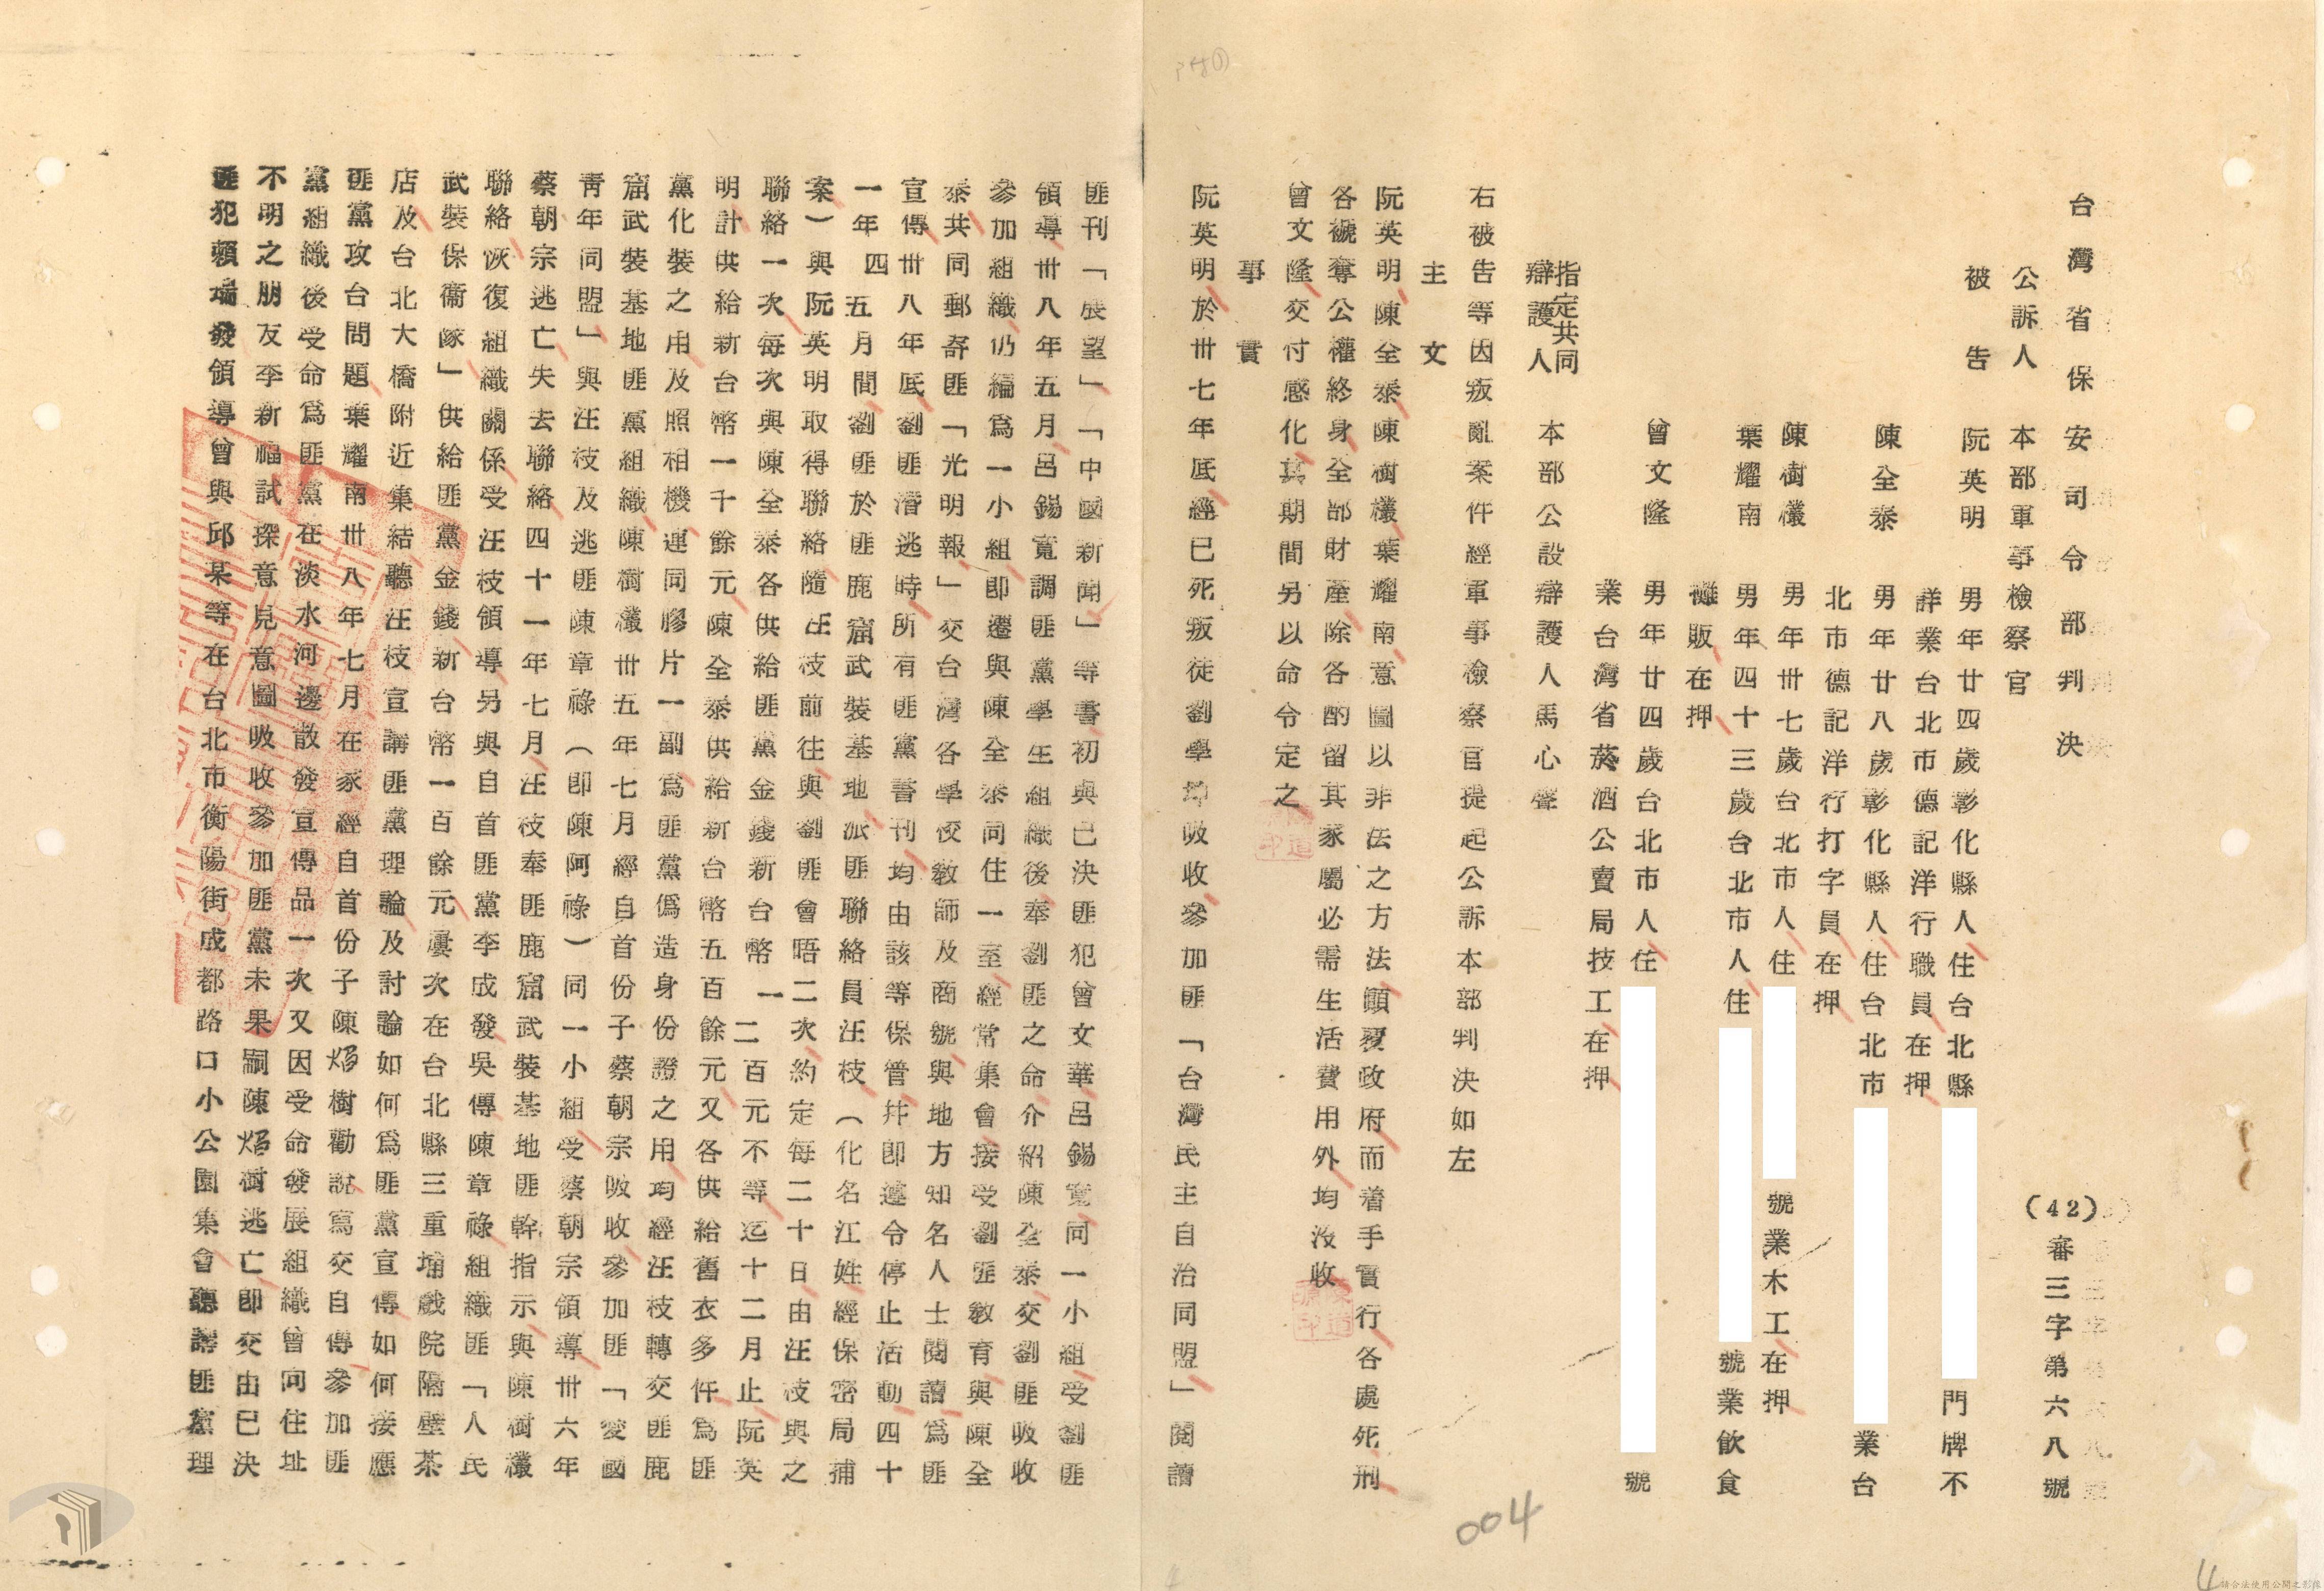 台灣省保安司令部判決
(42)審三字第六八號
公訴人 本部軍事檢察官
被告 阮英明 男年廿四歲彰化縣人住台北縣 門牌不
詳業台北市德記洋行職員在押
陳全泰 男年廿八歲彰化縣人住台北市 業台
北市德記洋行打字員在押
陳樹欉 男年卅七歲台北市人住 號業木工在押
葉耀南 男年四十三歲台北市人住 號業飲食
攤販在押
曾文隆 男年廿四歲台北市人住 號
業台灣省菸酒公賣局技工在押
指定共同
辯護人 本部公設辯護人馬心聲
右被告等因叛亂案件經軍事檢察官提起公訴本部判決如左
主文
阮英明陳全泰陳樹欉葉耀南意圖以非法之方法顛覆政府而着手實行各處死刑
各褫奪公權終身全部財產除各酌留其家屬必需生活費用外均沒收
曾文隆交付感化其期間另以命令定之
事實
阮英明於卅七年底經已死叛徒劉學坤吸收參加匪「台灣民主自治同盟」閱讀
匪刊「展望」「中國新聞」等書初與已決匪犯曾文華呂錫寬同一小組受劉匪
領導卅八年五月呂錫寬調匪黨學生組織後奉劉匪之命介紹陳全泰交劉匪吸收
參加組織仍編為一小組即遷與陳全泰同住一室經常集會接受劉匪教育與陳全
泰共同郵寄匪「光明報」交台灣各學校教師及商號與地方知名人士閱讀為匪
宣傳卅八年底劉匪潛逃時所有匪黨書刊均由該等保管并即遵令停止活動四十
一年四五月間劉匪於匪鹿窟武裝基地派匪聯絡員汪枝（化名江姓經保密局捕
案）與阮英明取得聯絡隨汪枝前往與劉匪會晤二次約定每二十日由汪枝與之
聯絡一次每次與陳全泰各供給匪黨金錢新台幣一二百元不等迄十二月止阮英
明計供給新台幣一千餘元陳全泰供給新台幣五百餘元又各供給舊衣多件為匪
黨化裝之用及照相機連同膠片一副為匪黨偽造身份證之用均經汪枝轉交匪鹿
窟武裝基地匪黨組織陳樹欉卅五年七月經自首份子蔡朝宗吸收參加匪「愛國
青年同盟」與汪枝及逃匪陳章祿（即陳阿祿）同一小組受蔡朝宗領導卅六年
蔡朝宗逃亡失去聯絡四十一年七月汪枝奉匪鹿窟武裝基地匪幹指示與陳樹欉
聯絡恢復組織關係受汪枝領導另與自首匪黨李成發吳傳陳章祿組織匪「人民
武裝保衞隊」供給匪黨金錢新台幣一百餘元屢次在台北縣三重埔戲院隔壁茶
店及台北大橋附近集結聽汪枝宣講匪黨理論及討論如何為匪黨宣傳如何接應
匪黨攻台問題葉耀南卅八年七月在家經自首份子陳炤樹勸說寫交自傳參加匪
黨組織後受命為匪黨在淡水河邊散發宣傳品一次又因受命發展組織曾向住址
不明之朋友李新福試探意見意圖吸收參加匪黨未果嗣陳炤樹逃亡即交由已決
匪犯賴瑞發領導曾與邱某等在台北市衡陽街成都路口小公園集會聽講匪黨理
004
4
請合法使用公開之影像